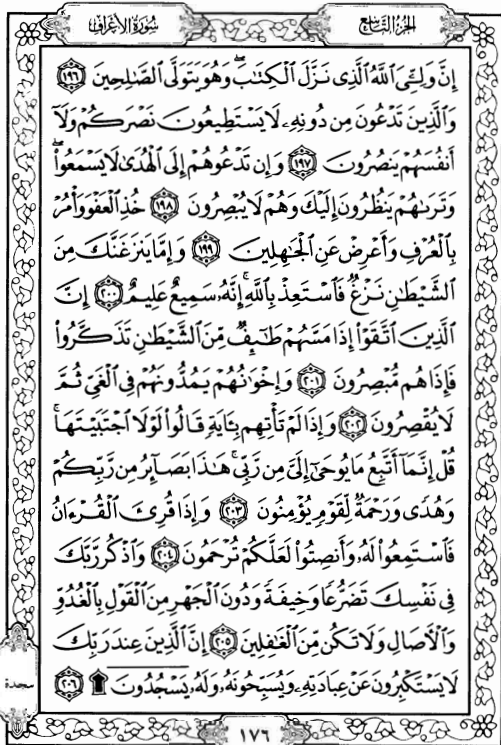 الجزء التاسع
سورة الأعراف
إِنَّ وَلِـِّۧىَ ٱللَّهُ ٱلَّذِى نَزَّلَ ٱلْكِتَٰبَ ۖ وَهُوَ يَتَوَلَّى ٱلصَّٰلِحِينَ ١٩٦
وَٱلَّذِينَ تَدْعُونَ مِن دُونِهِۦ لَا يَسْتَطِيعُونَ نَصْرَكُمْ وَلَآ
أَنفُسَهُمْ يَنصُرُونَ ١٩٧ وَإِن تَدْعُوهُمْ إِلَى ٱلْهُدَىٰ لَا يَسْمَعُوا۟ ۖ
وَتَرَىٰهُمْ يَنظُرُونَ إِلَيْكَ وَهُمْ لَا يُبْصِرُونَ ١٩٨ خُذِ ٱلْعَفْوَ وَأْمُرْ
بِٱلْعُرْفِ وَأَعْرِضْ عَنِ ٱلْجَٰهِلِينَ ١٩٩ وَإِمَّا يَنزَغَنَّكَ مِنَ
ٱلشَّيْطَٰنِ نَزْغٌ فَٱسْتَعِذْ بِٱللَّهِ ۚ إِنَّهُۥ سَمِيعٌ عَلِيمٌ ٢٠٠ إِنَّ
ٱلَّذِينَ ٱتَّقَوْا۟ إِذَا مَسَّهُمْ طَٰٓئِفٌ مِّنَ ٱلشَّيْطَٰنِ تَذَكَّرُوا۟
فَإِذَا هُم مُّبْصِرُونَ ٢٠١ وَإِخْوَٰنُهُمْ يَمُدُّونَهُمْ فِى ٱلْغَىِّ ثُمَّ
لَا يُقْصِرُونَ ٢٠٢ وَإِذَا لَمْ تَأْتِهِم بِـَٔايَةٍ قَالُوا۟ لَوْلَا ٱجْتَبَيْتَهَا ۚ
قُلْ إِنَّمَآ أَتَّبِعُ مَا يُوحَىٰٓ إِلَىَّ مِن رَّبِّى ۚ هَٰذَا بَصَآئِرُ مِن رَّبِّكُمْ
وَهُدًى وَرَحْمَةٌ لِّقَوْمٍ يُؤْمِنُونَ ٢٠٣ وَإِذَا قُرِئَ ٱلْقُرْءَانُ
فَٱسْتَمِعُوا۟ لَهُۥ وَأَنصِتُوا۟ لَعَلَّكُمْ تُرْحَمُونَ ٢٠٤ وَٱذْكُر رَّبَّكَ
فِى نَفْسِكَ تَضَرُّعًا وَخِيفَةً وَدُونَ ٱلْجَهْرِ مِنَ ٱلْقَوْلِ بِٱلْغُدُوِّ
وَٱلْءَاصَالِ وَلَا تَكُن مِّنَ ٱلْغَٰفِلِينَ ٢٠٥ إِنَّ ٱلَّذِينَ عِندَ رَبِّكَ
لَا يَسْتَكْبِرُونَ عَنْ عِبَادَتِهِۦ وَيُسَبِّحُونَهُۥ وَلَهُۥ يَسْجُدُونَ ۩ ٢٠٦
سجدة
١٧٦